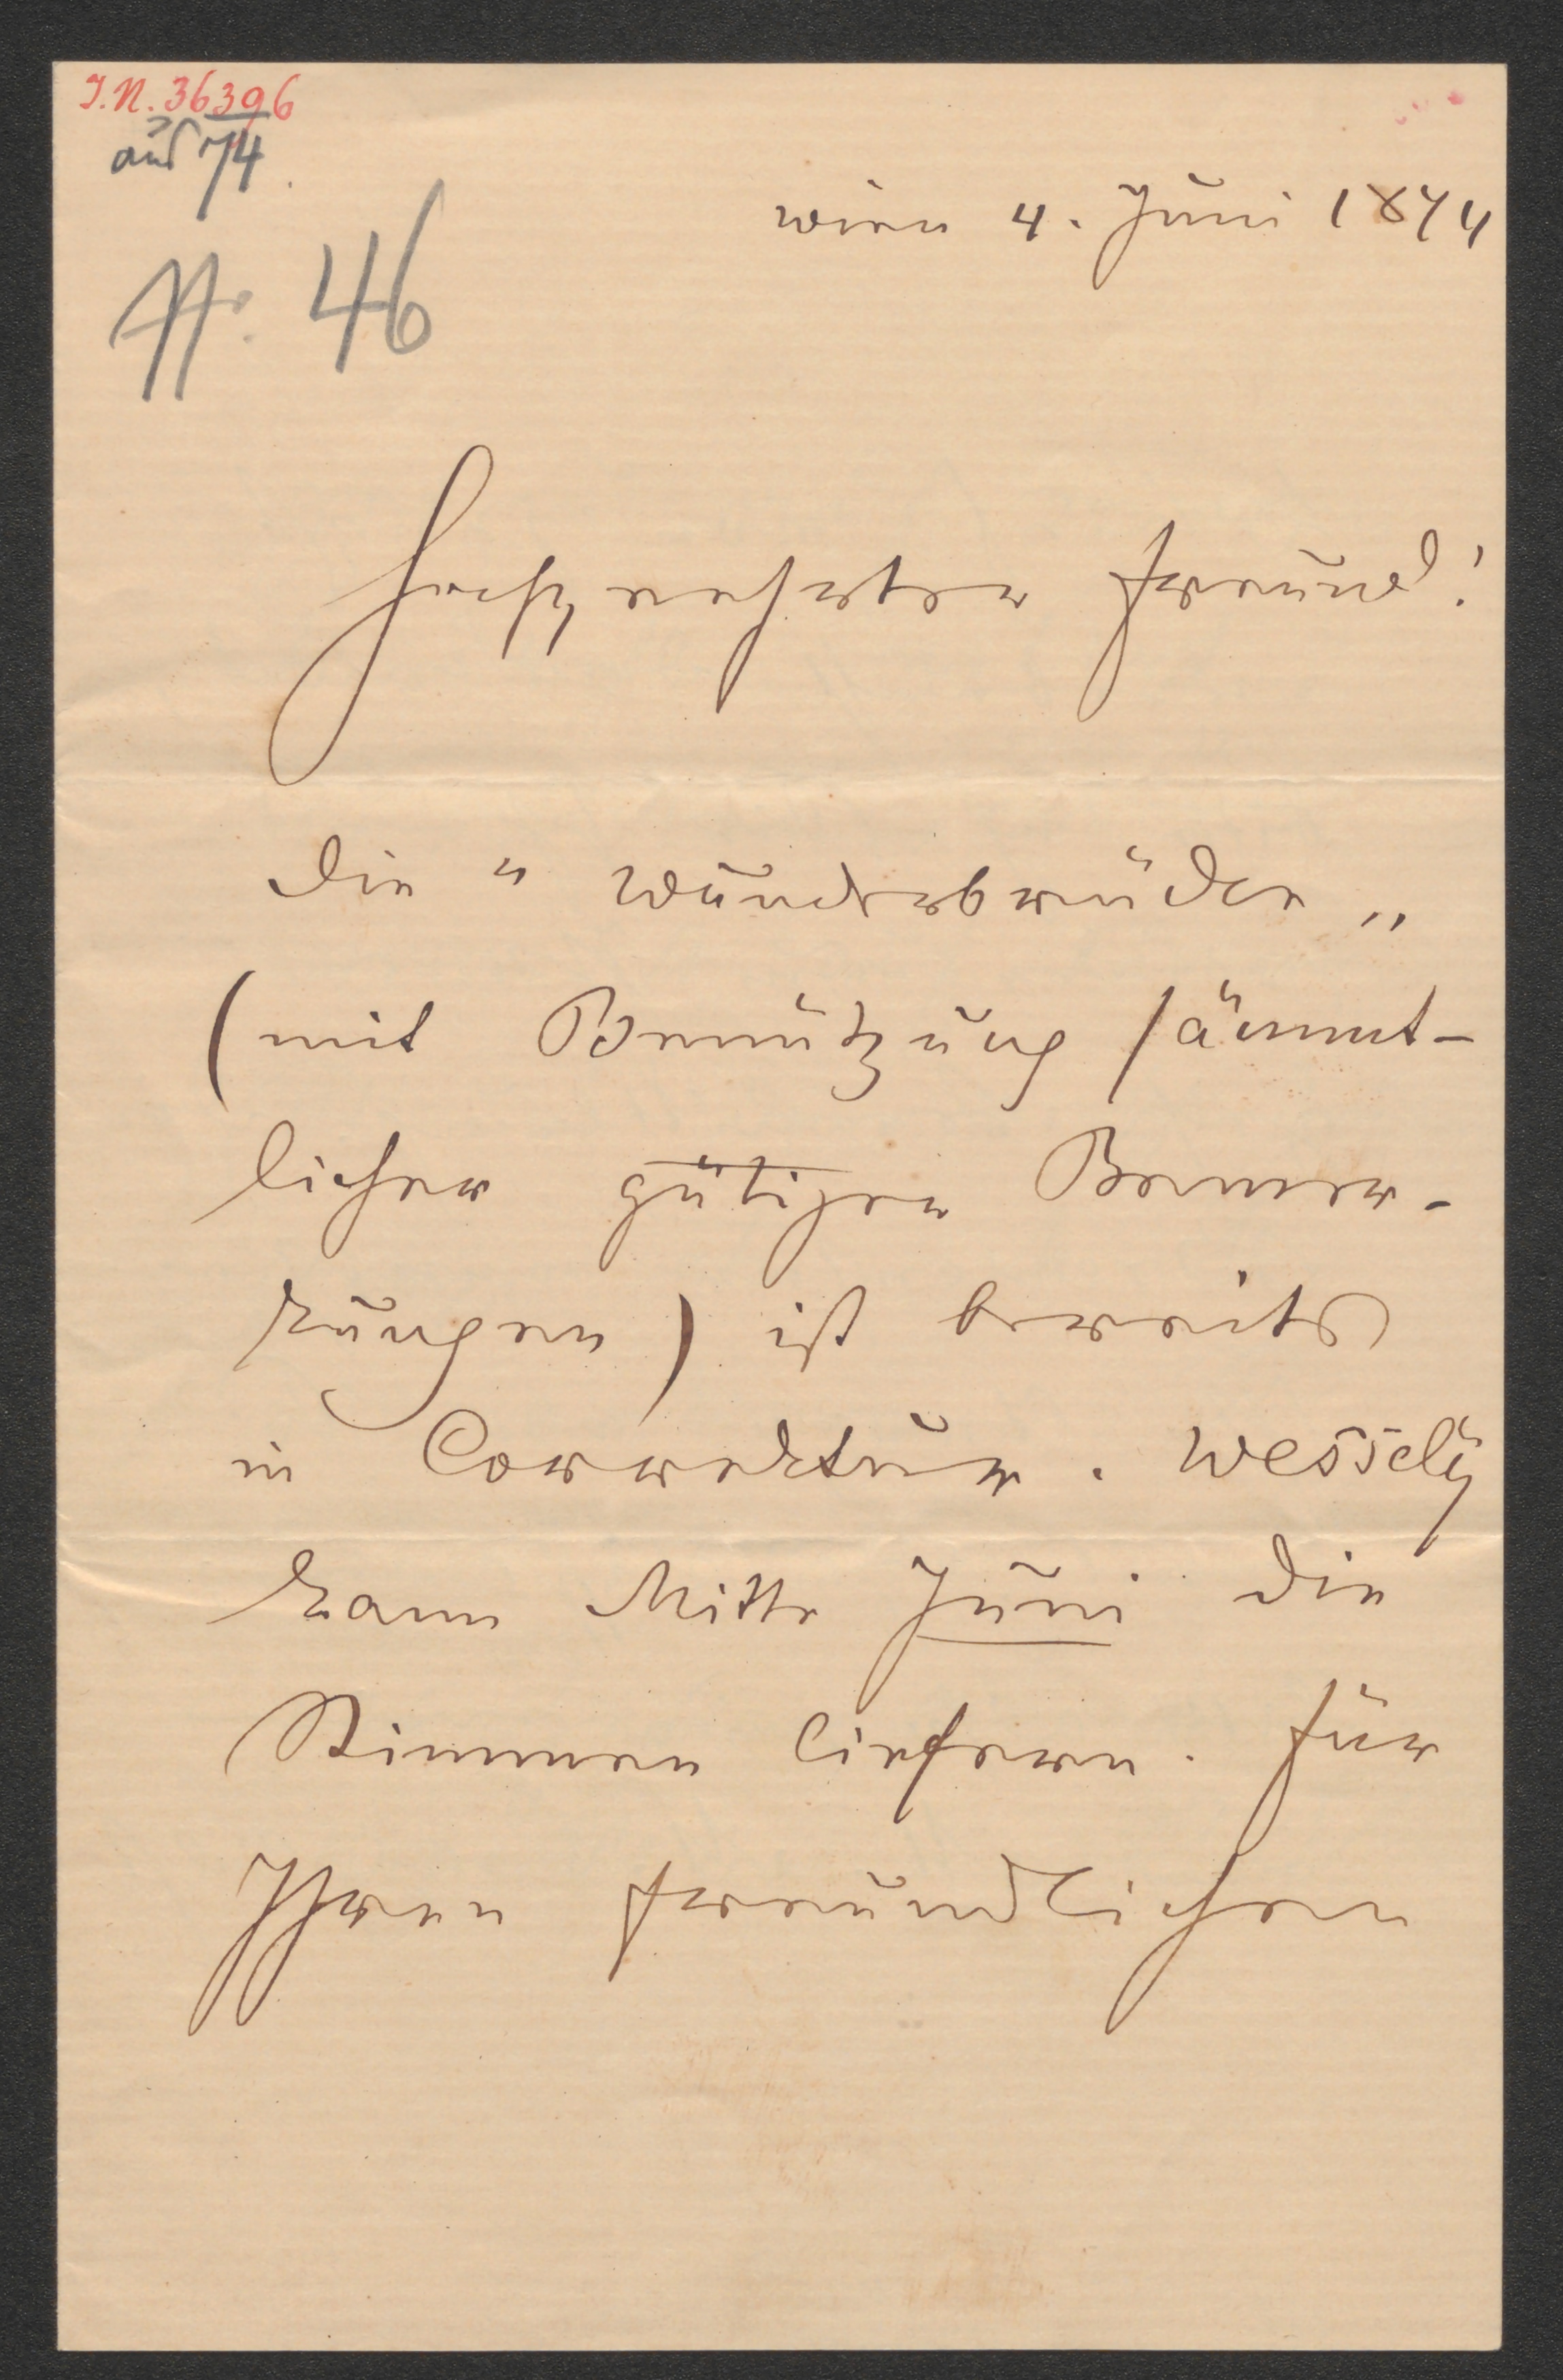 I.N. 36396
aus 74
No. 46
Wien 4. Juni 1874
Hochgeehrter Freund!
Die "Wunderbrücke"
(mit Benützung sämmt-
licher gütigen Bemer-
kungen) ist bereits
in Correktur. Wessely
kann Mitte Juni die
Stimmen liefern. Für
Ihren freundlichen